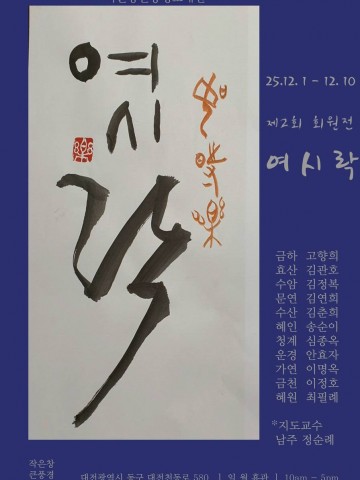 여시락
樂
25.12. 1 - 12. 10
제2회 회원전
여시락
금하 고향희
효산 김관호
수암 김정복
문연 김연희
수산 김춘희
혜인 송순이
청계 심종옥
운경 안효자
가연 이명옥
금천 이정호
혜원 최필례
*지도교수
남주 정순례
작은창
큰풍경
대전광역시 동구 대전천동로 580 | 일 월 휴관 | 10am - 5pm